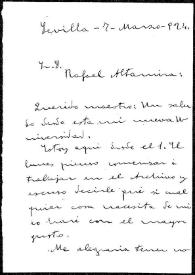 Sevilla - 7 - Marzo - 924.
Rafael Altamira:
Querido maestro: Un salu
do desde esta mi nueva U
niversidad.
Estoy aquí desde el 1. El
lunes pienso comenzar a
trabajar en el Archivo y
excuso decirle que si cual
quier cosa necesita de mi
lo haré con el mayor
gusto.
Me alegraría tener no